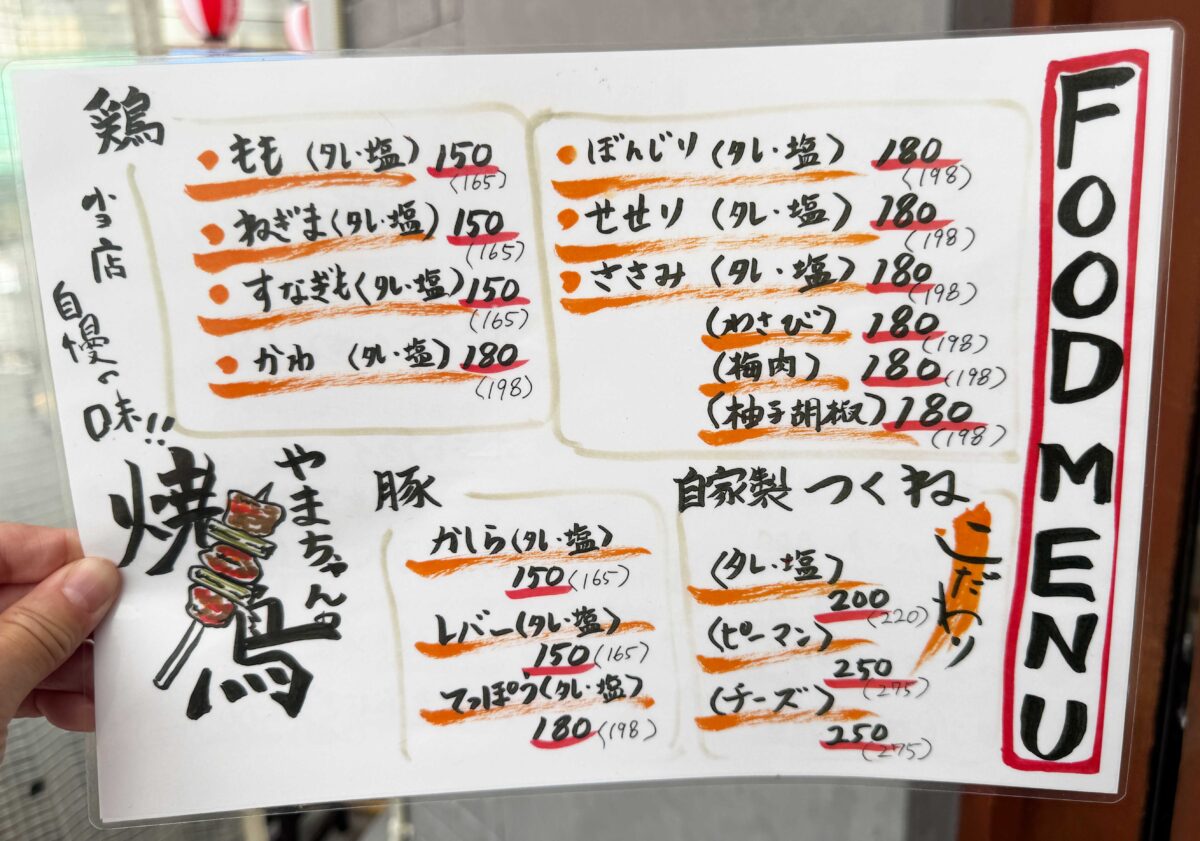 FOOD MENU
鶏
当店
自慢の
味!!
もも(タレ・塩) 150 (165)
ねぎま(タレ・塩) 150 (165)
すなぎも(タレ・塩) 150 (165)
かわ (タレ・塩) 180 (198)
ぼんじり(タレ・塩) 180 (198)
せせり (タレ・塩) 180 (198)
ささみ (タレ・塩) 180 (198)
(わさび) 180 (198)
(梅肉) 180 (198)
(柚子胡椒) 180 (198)
やまちゃんの
焼鳥
豚
かしら(タレ・塩)
150 (165)
レバー(タレ・塩)
150 (165)
てっぽう(タレ・塩)
180 (198)
自家製 つくね
こだわり
(タレ・塩)
200 (220)
(ピーマン)
250 (275)
(チーズ)
250 (275)